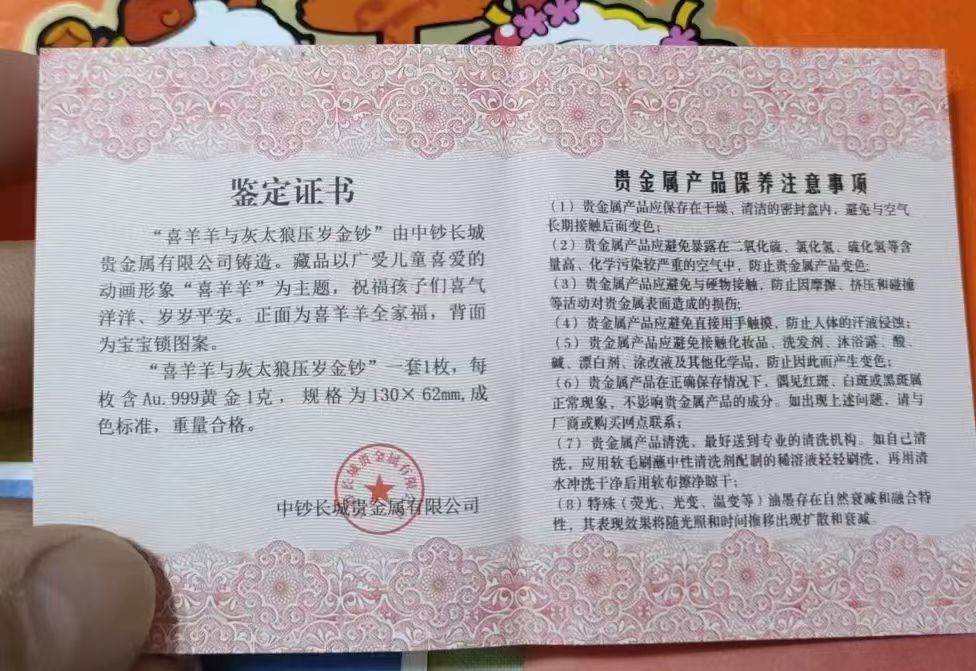 鉴定证书
“喜羊羊与灰太狼压岁金钞”由中钞长城
贵金属有限公司铸造。藏品以广受儿童喜爱的
动画形象“喜羊羊”为主题，祝福孩子们喜气
洋洋、岁岁平安。正面为喜羊羊全家福，背面
为宝宝锁图案。
“喜羊羊与灰太狼压岁金钞”一套1枚，每
枚含Au.999黄金1克，规格为130×62mm,成
色标准，重量合格。
中钞长城贵金属有限公司
贵金属产品保养注意事项
（1）贵金属产品应保存在干燥、清洁的密封盒内，避免与空气
长期接触后而变色；
（2）贵金属产品应避免暴露在二氧化硫、氯化氢、硫化氢等含
量高、化学污染较严重的空气中，防止贵金属产品变色；
（3）贵金属产品应避免与硬物接触，防止因摩擦、挤压和碰撞
等活动对贵金属表面造成的损伤；
（4）贵金属产品应避免直接用手触摸，防止人体的汗液侵蚀；
（5）贵金属产品应避免接触化妆品、洗发剂、沐浴露、酸、
碱、漂白剂、涂改液及其他化学品，防止因此而产生变色；
（6）贵金属产品在正确保存情况下，偶见红斑、白斑或黑斑属
正常现象，不影响贵金属产品的成分。如出现上述问题，请与
厂商或购买网点联系；
（7）贵金属产品清洗，最好送到专业的清洗机构。如自己清
洗，应用软毛刷蘸中性清洗剂配制的稀溶液轻轻刷洗，再用清
水冲洗干净后用软布擦净晾干；
（8）特殊（荧光、光变、温变等）油墨存在自然衰减和融合特
性，其表现效果将随光照和时间推移出现扩散和衰减。